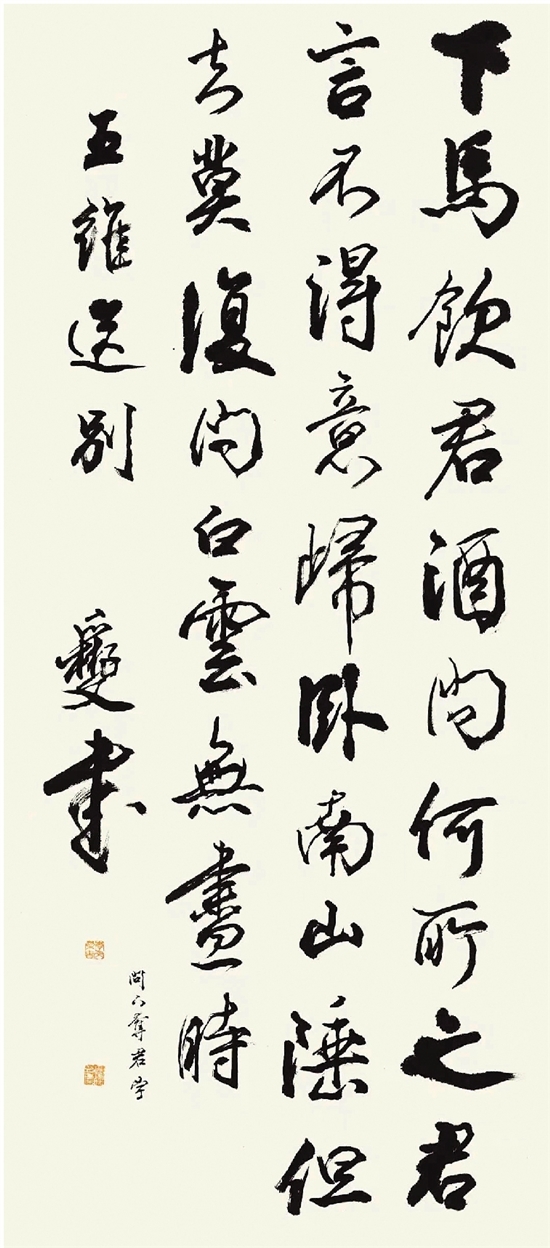 下馬飲君酒問何所之君
言不得意歸臥南山陲但
去莫復問白雲無盡時
王維送別
書
問下奪君字